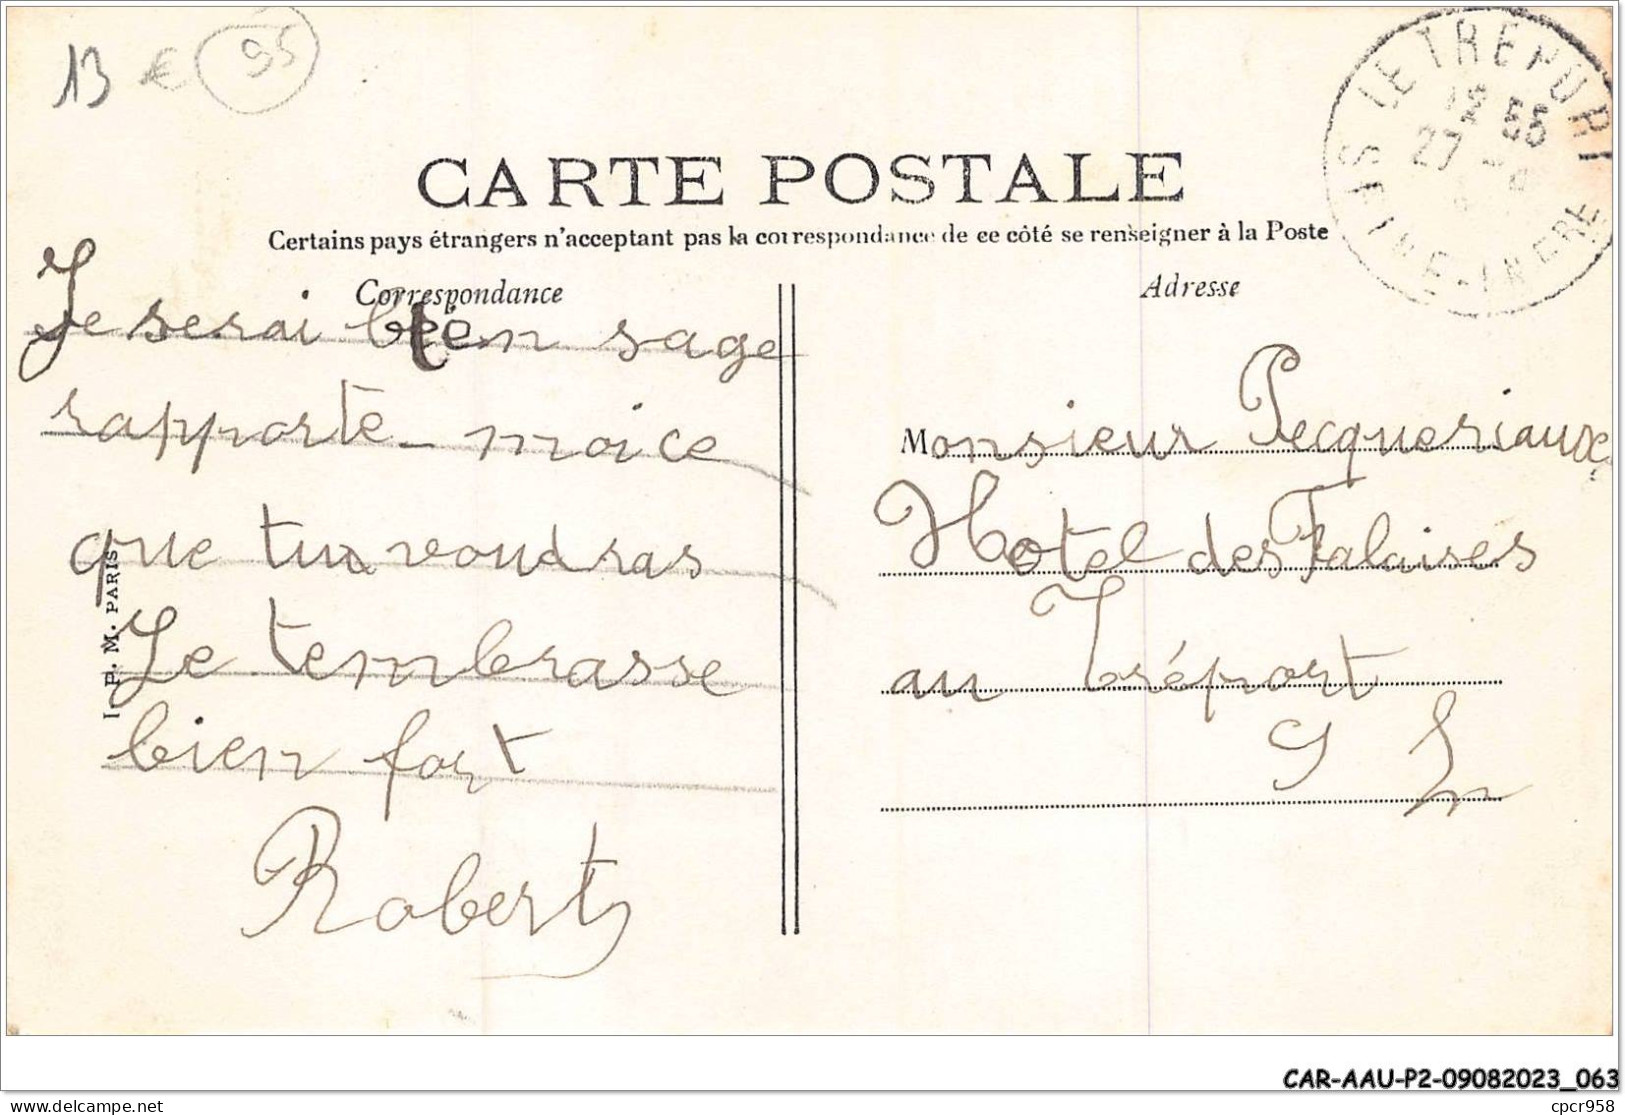 13 € 95
LE TREPORT
SEINE-INFRE
55
27
CARTE POSTALE
Certains pays étrangers n'acceptant pas la correspondance de ce côté se renseigner à la Poste
Correspondance
Je serai bien sage
rapporte-moi ce
que tu voudras
Je tembrasse
bien fort
Robert
I. P. M. PARIS
Adresse
Monsieur Pecqueriaux
Hotel des Falaises
au Tréport
S In
CAR-AAU-P2-09082023_063
delcampe.net
cpcr958